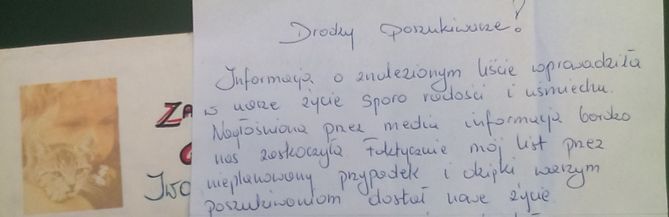 Drodzy poszukiwacze!
Informacja o znalezionym liście wprowadziła
w nasze życie sporo radości i uśmiechu.
Nagłośniona przez media informacja bardzo
nas zaskoczyła. Faktycznie mój list przez
nieplanowany przypadek i dzięki waszym
poszukiwaniom dostał nowe życie.
ZA